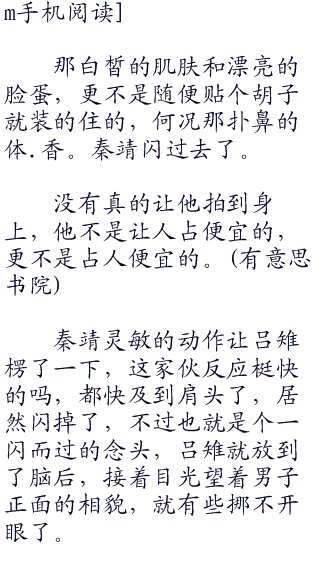 m手机阅读]
那白皙的肌肤和漂亮的
脸蛋，更不是随便贴个胡子
就装的住的，何况那扑鼻的
体.香。秦靖闪过去了。
没有真的让他拍到身
上，他不是让人占便宜的，
更不是占人便宜的。(有意思
书院)
秦靖灵敏的动作让吕雉
楞了一下，这家伙反应梃快
的吗，都快及到肩头了，居
然闪掉了，不过也就是个一
闪而过的念头，吕雉就放到
了脑后，接着目光望着男子
正面的相貌，就有些挪不开
眼了。